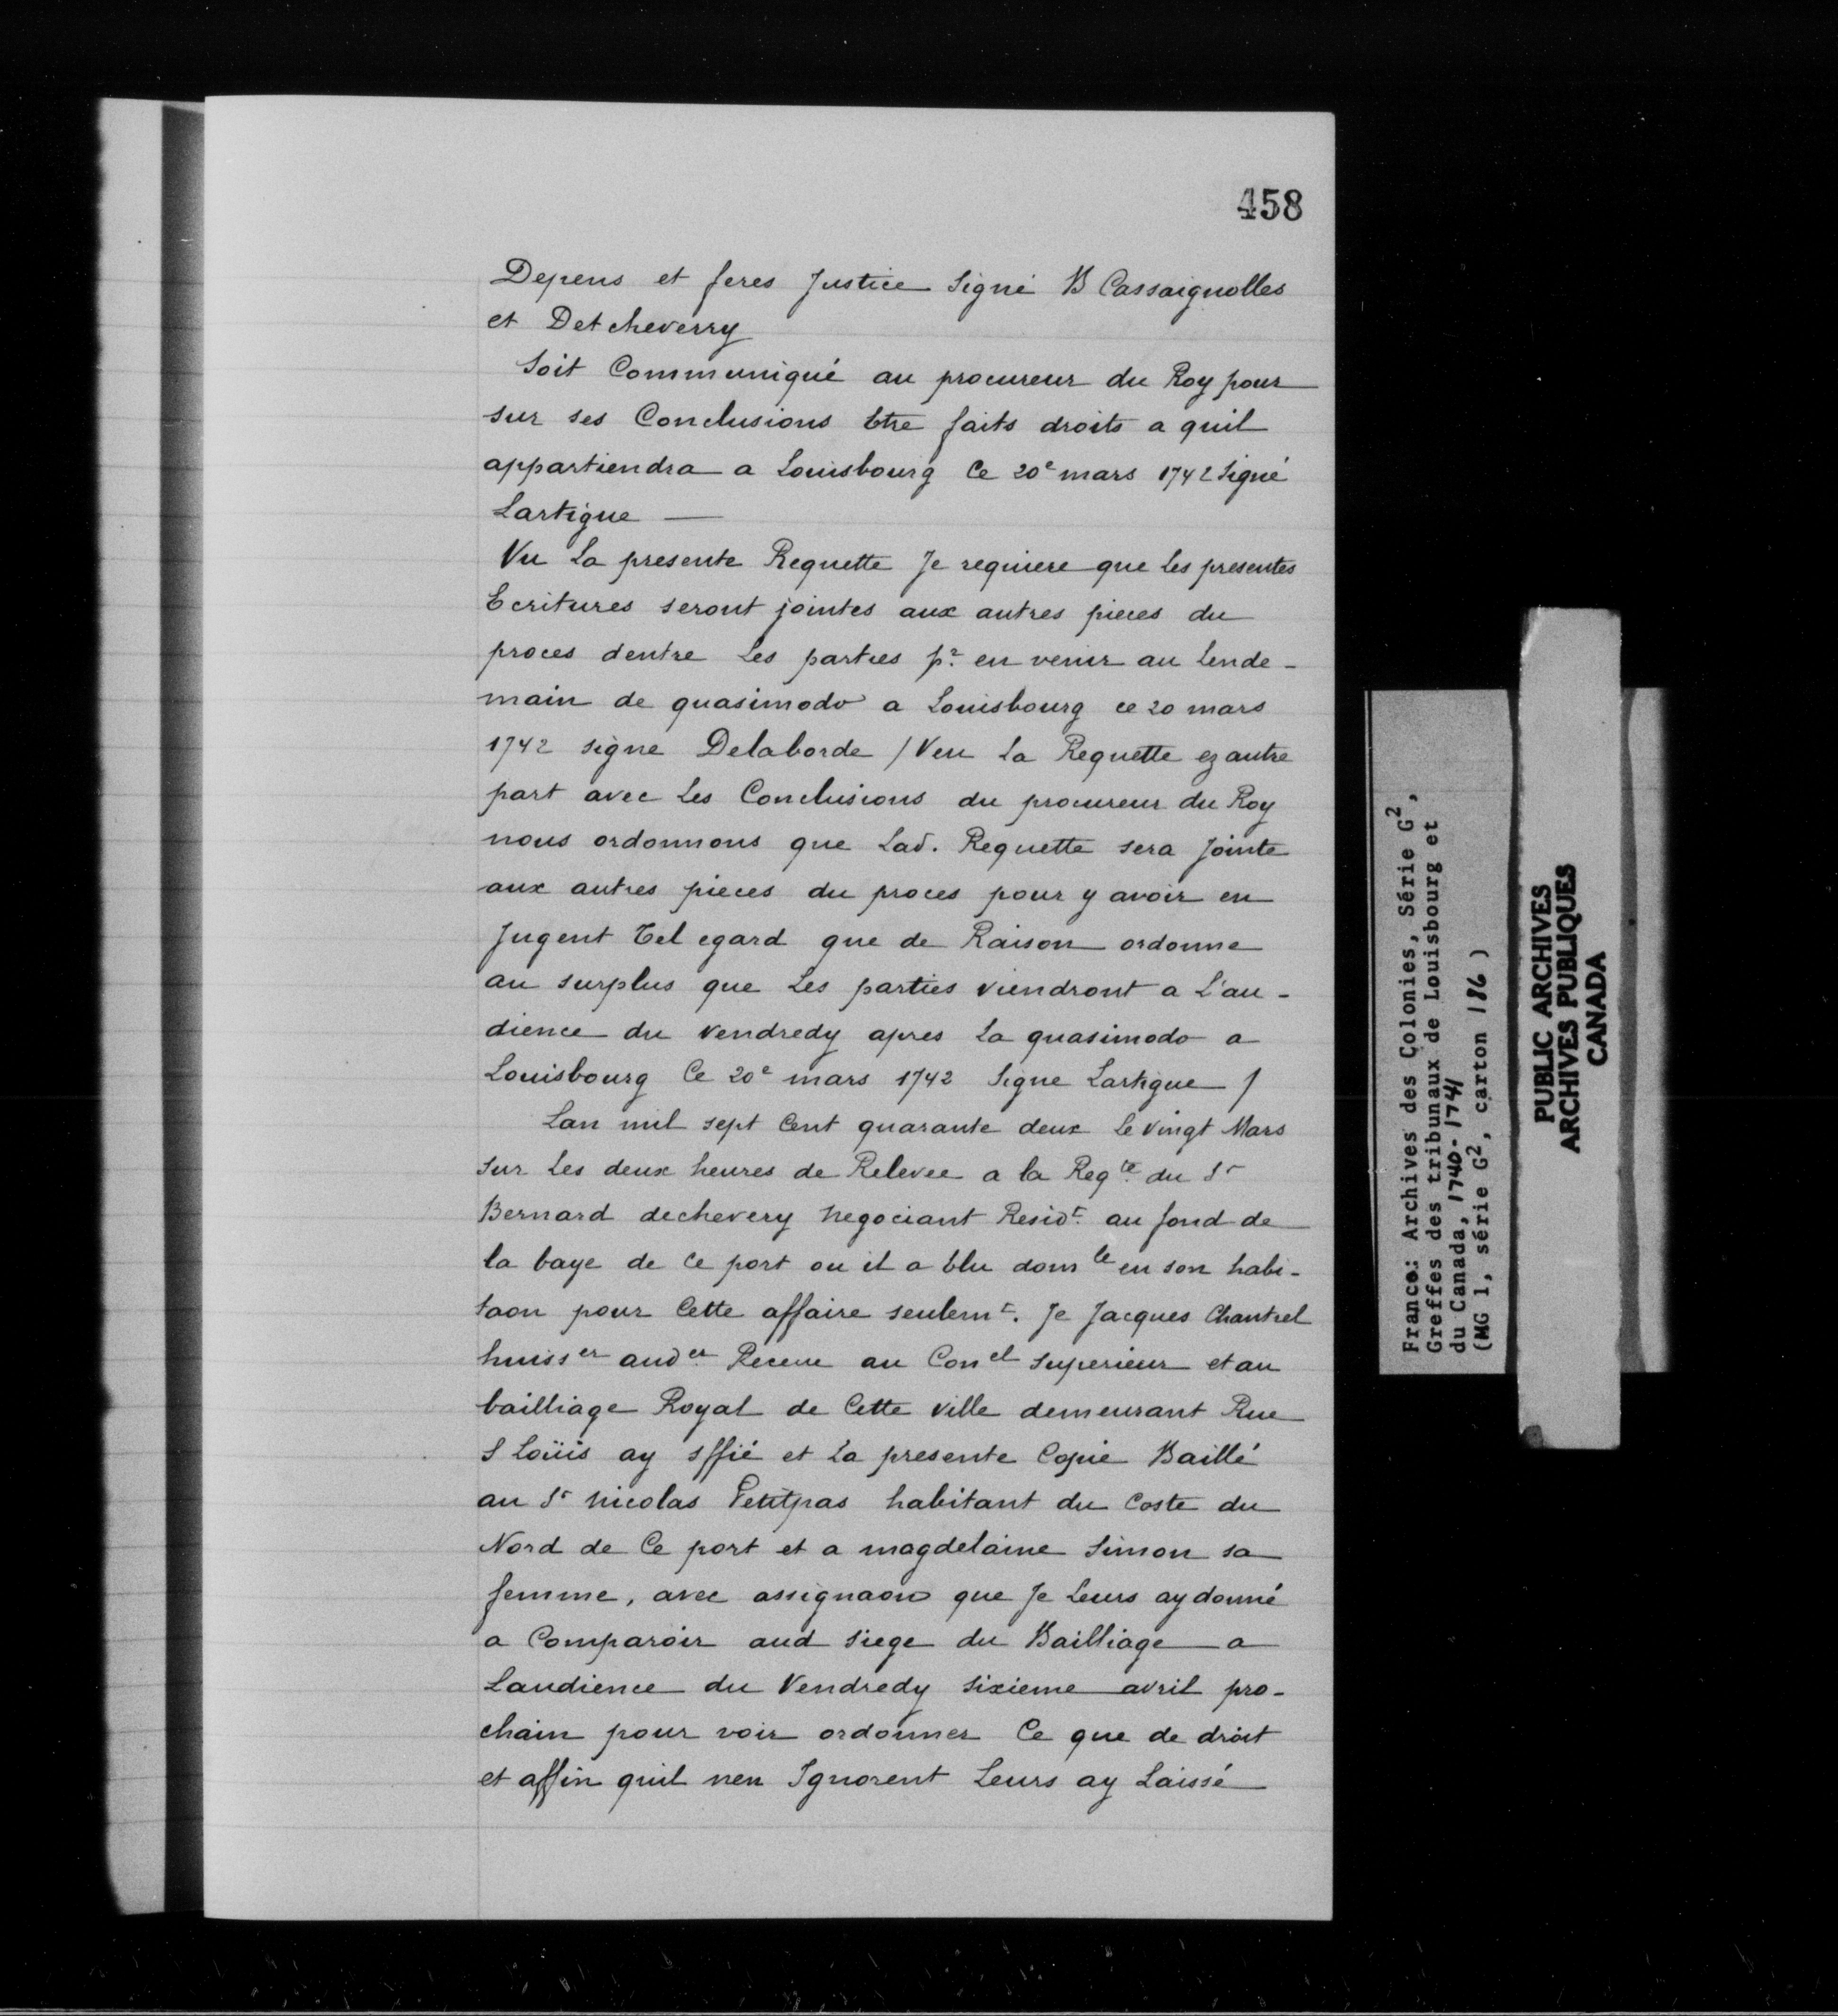 458
Depens et feres Justice Signé B Cassaignolles
et Detcheverry
Soit Communiqué au procureur du Roy pour
sur ses Conclusions Etre faits droits a quil
appartiendra a Louisbourg Ce 20e mars 1742 Signé
Lartigue —
Vu La presente Requette Je requiere que Les presentes
Ecritures seront jointes aux autres pieces du
proces dentre Les parties pr en venir au Lende-
main de quasimodo a Louisbourg ce 20 mars
1742 signe Delaborde / Veu La Requette ez autre
part avec Les Conclusions du procureur du Roy
nous ordonnons que Lad. Requette sera Jointe
aux autres pieces du proces pour y avoir en
Jugent Tel egard que de Raison ordonne
au surplus que Les parties viendront a L'au-
dience du vendredy apres La quasimodo a
Louisbourg Ce 20e mars 1742 Signe Lartigue /
Lan mil sept Cent quarante deux Le vingt Mars
sur Les deux heures de Relevee a la Reqte du Sr
Bernard dechevery negociant Residt au fond de
la baye de Ce port ou il a Elu domle en son habi-
taon pour Cette affaire seulemt. Je Jacques Chantrel
huisser ander Receue au Conel Superieur et au
bailliage Royal de Cette ville demeurant Rue
S Loüis ay sffié et La presente Copie Baillé
au Sr nicolas Petitpas habitant du Coste du
Nord de Ce port et a magdelaine Simon sa
femme, avec assignaon que Je Leurs ay donné
a Comparoir aud Siege du Bailliage a
Laudience du Vendredy Sixieme avril pro-
chain pour voir ordonner Ce que de droit
et affin quil nen Ignorent Leurs ay Laissé
France: Archives des Colonies, Série G2,
Greffes des tribunaux de Louisbourg et
du Canada, 1740-1741
(MG 1, série G2, carton 186 )
PUBLIC ARCHIVES
ARCHIVES PUBLIQUES
CANADA